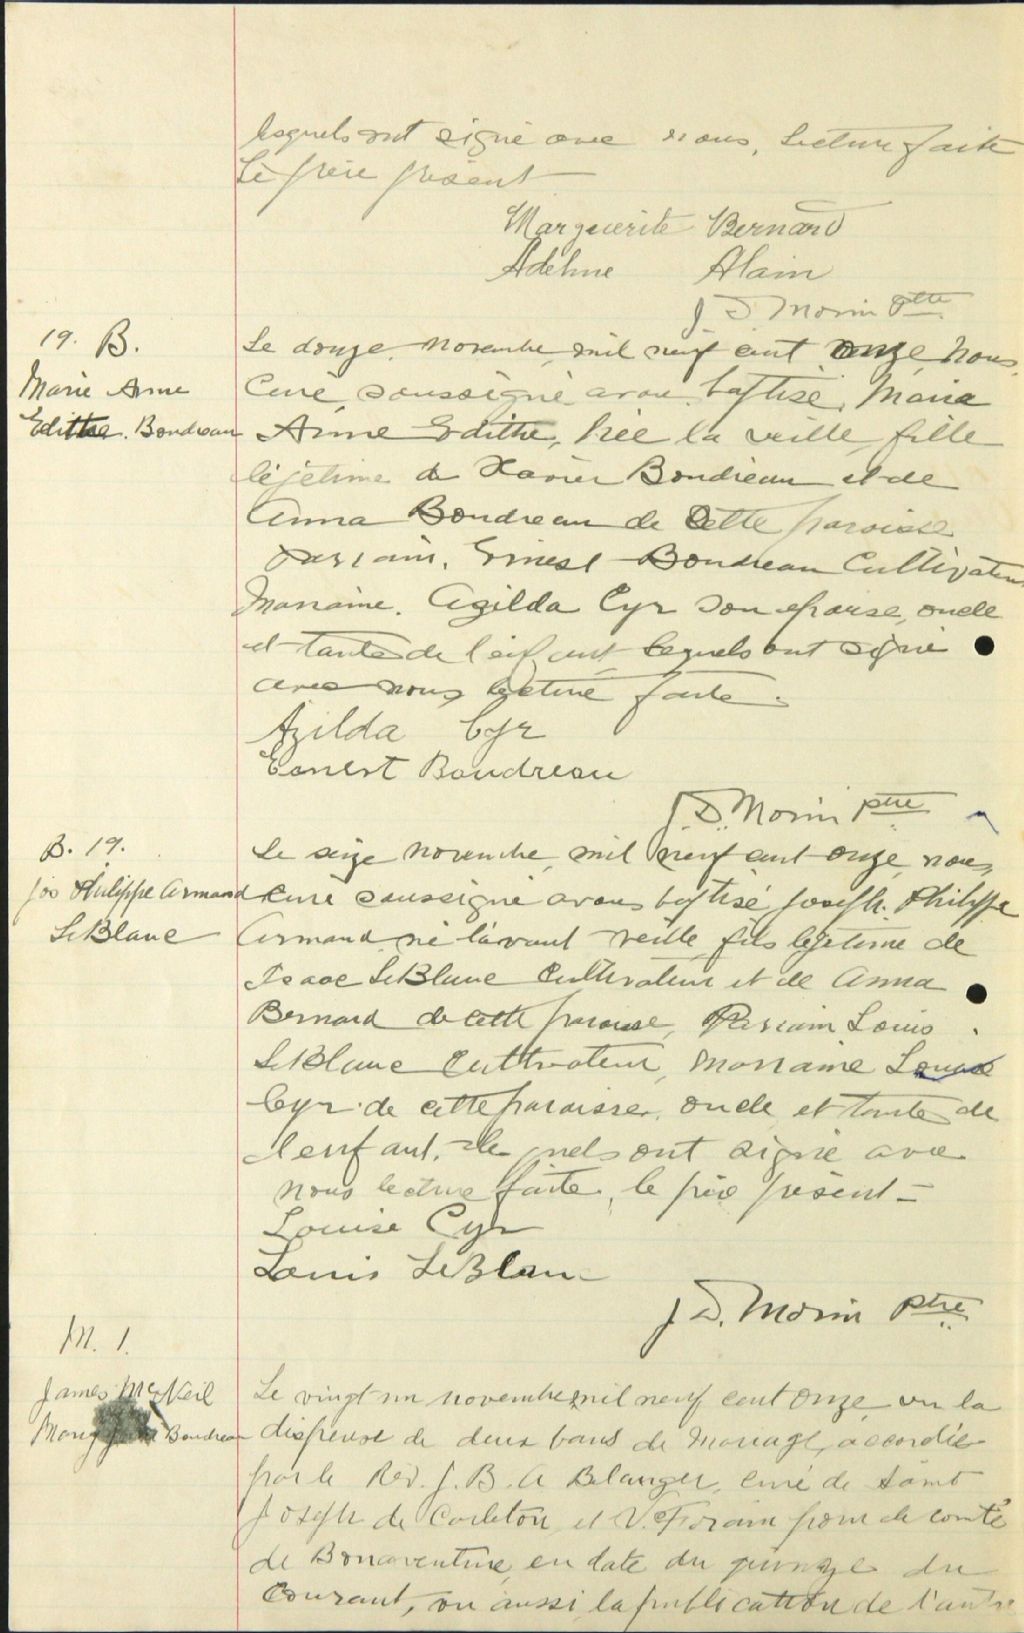 lesquels ont signé avec nous, Lecture faite
Le père présent
Marguerite Bernard
Adeline Alain
J. D. Morin Ptre
19. B.
Marie Anne
Edithe. Boudreau
Le douze, novembre, mil neuf cent onze, nous,
Curé, soussigné avons baptisé, Marie
Anne Edithe, née la veille, fille
légétime de Xavier Boudreau et de
Anna Boudreau de Cette paroisse
Parrain, Ernest Boudreau Cultivateur
Marraine. Azilda Cyr son épouse, oncle
et tante de l'enfant, lesquels ont signé
avec nous, lecture faite.
Azilda Cyr
Ernest Boudreau
J. D. Morin Ptre
B. 19.
Jos Philippe Armand
LeBlanc
Le seize novembre, mil neuf cent onze, nous,
Curé soussigné avons baptisé Joseph. Philippe
Armand, né l'avant veille, fils légetime de
Isaac LeBlanc Cultivateur et de Anna
Bernard de cette paroisse, Parrain Louis
LeBlanc Cultivateur, marraine Louise
Cyr de cette paroisse, oncle et tante de
l'enfant, lesquels ont signé avec
nous lecture faite, le père présent -
Louise Cyr
Louis LeBlanc
J. D. Morin Ptre
M. 1.
James McNeil
Mary Boudreau
Le vingt un novembre, mil neuf cent onze, vu la
dispense de deux bans de mariage, accordée
par le Rev. J. B. A Belanger, curé de Saint
Joseph de Carleton, et V. Forain pour le comté
de Bonaventure, en date du quinze du
Courant, vu aussi la publication de l'autre